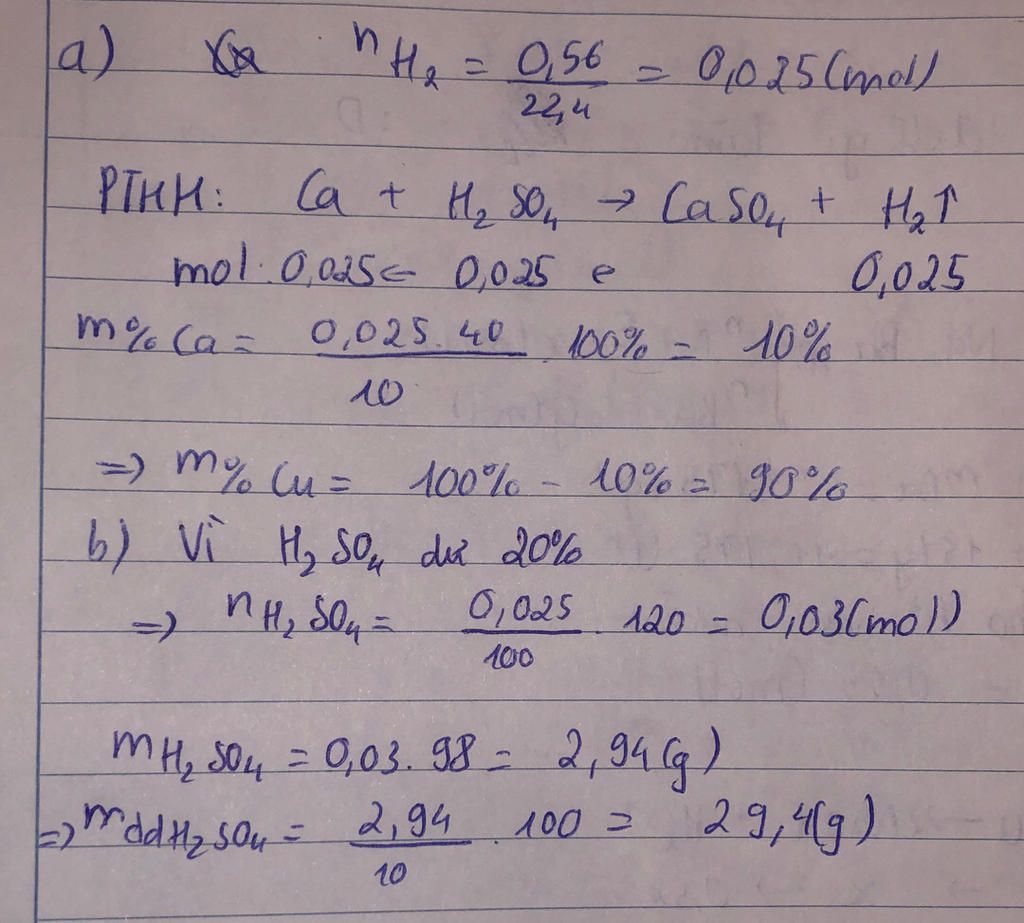 a) nH₂ = 0,56/22,4 = 0,025(mol)
PTHH: Ca + H₂SO₄ → CaSO₄ + H₂↑
mol: 0,025 ← 0,025 ← 0,025
m% Ca = 0,025.40/10 . 100% = 10%
=> m% Cu = 100% - 10% = 90%
b) Vì H₂SO₄ dư 20%
=> nH₂SO₄ = 0,025/100 . 120 = 0,03(mol)
mH₂SO₄ = 0,03.98 = 2,94(g)
=> mddH₂SO₄ = 2,94/10 . 100 = 29,4(g)